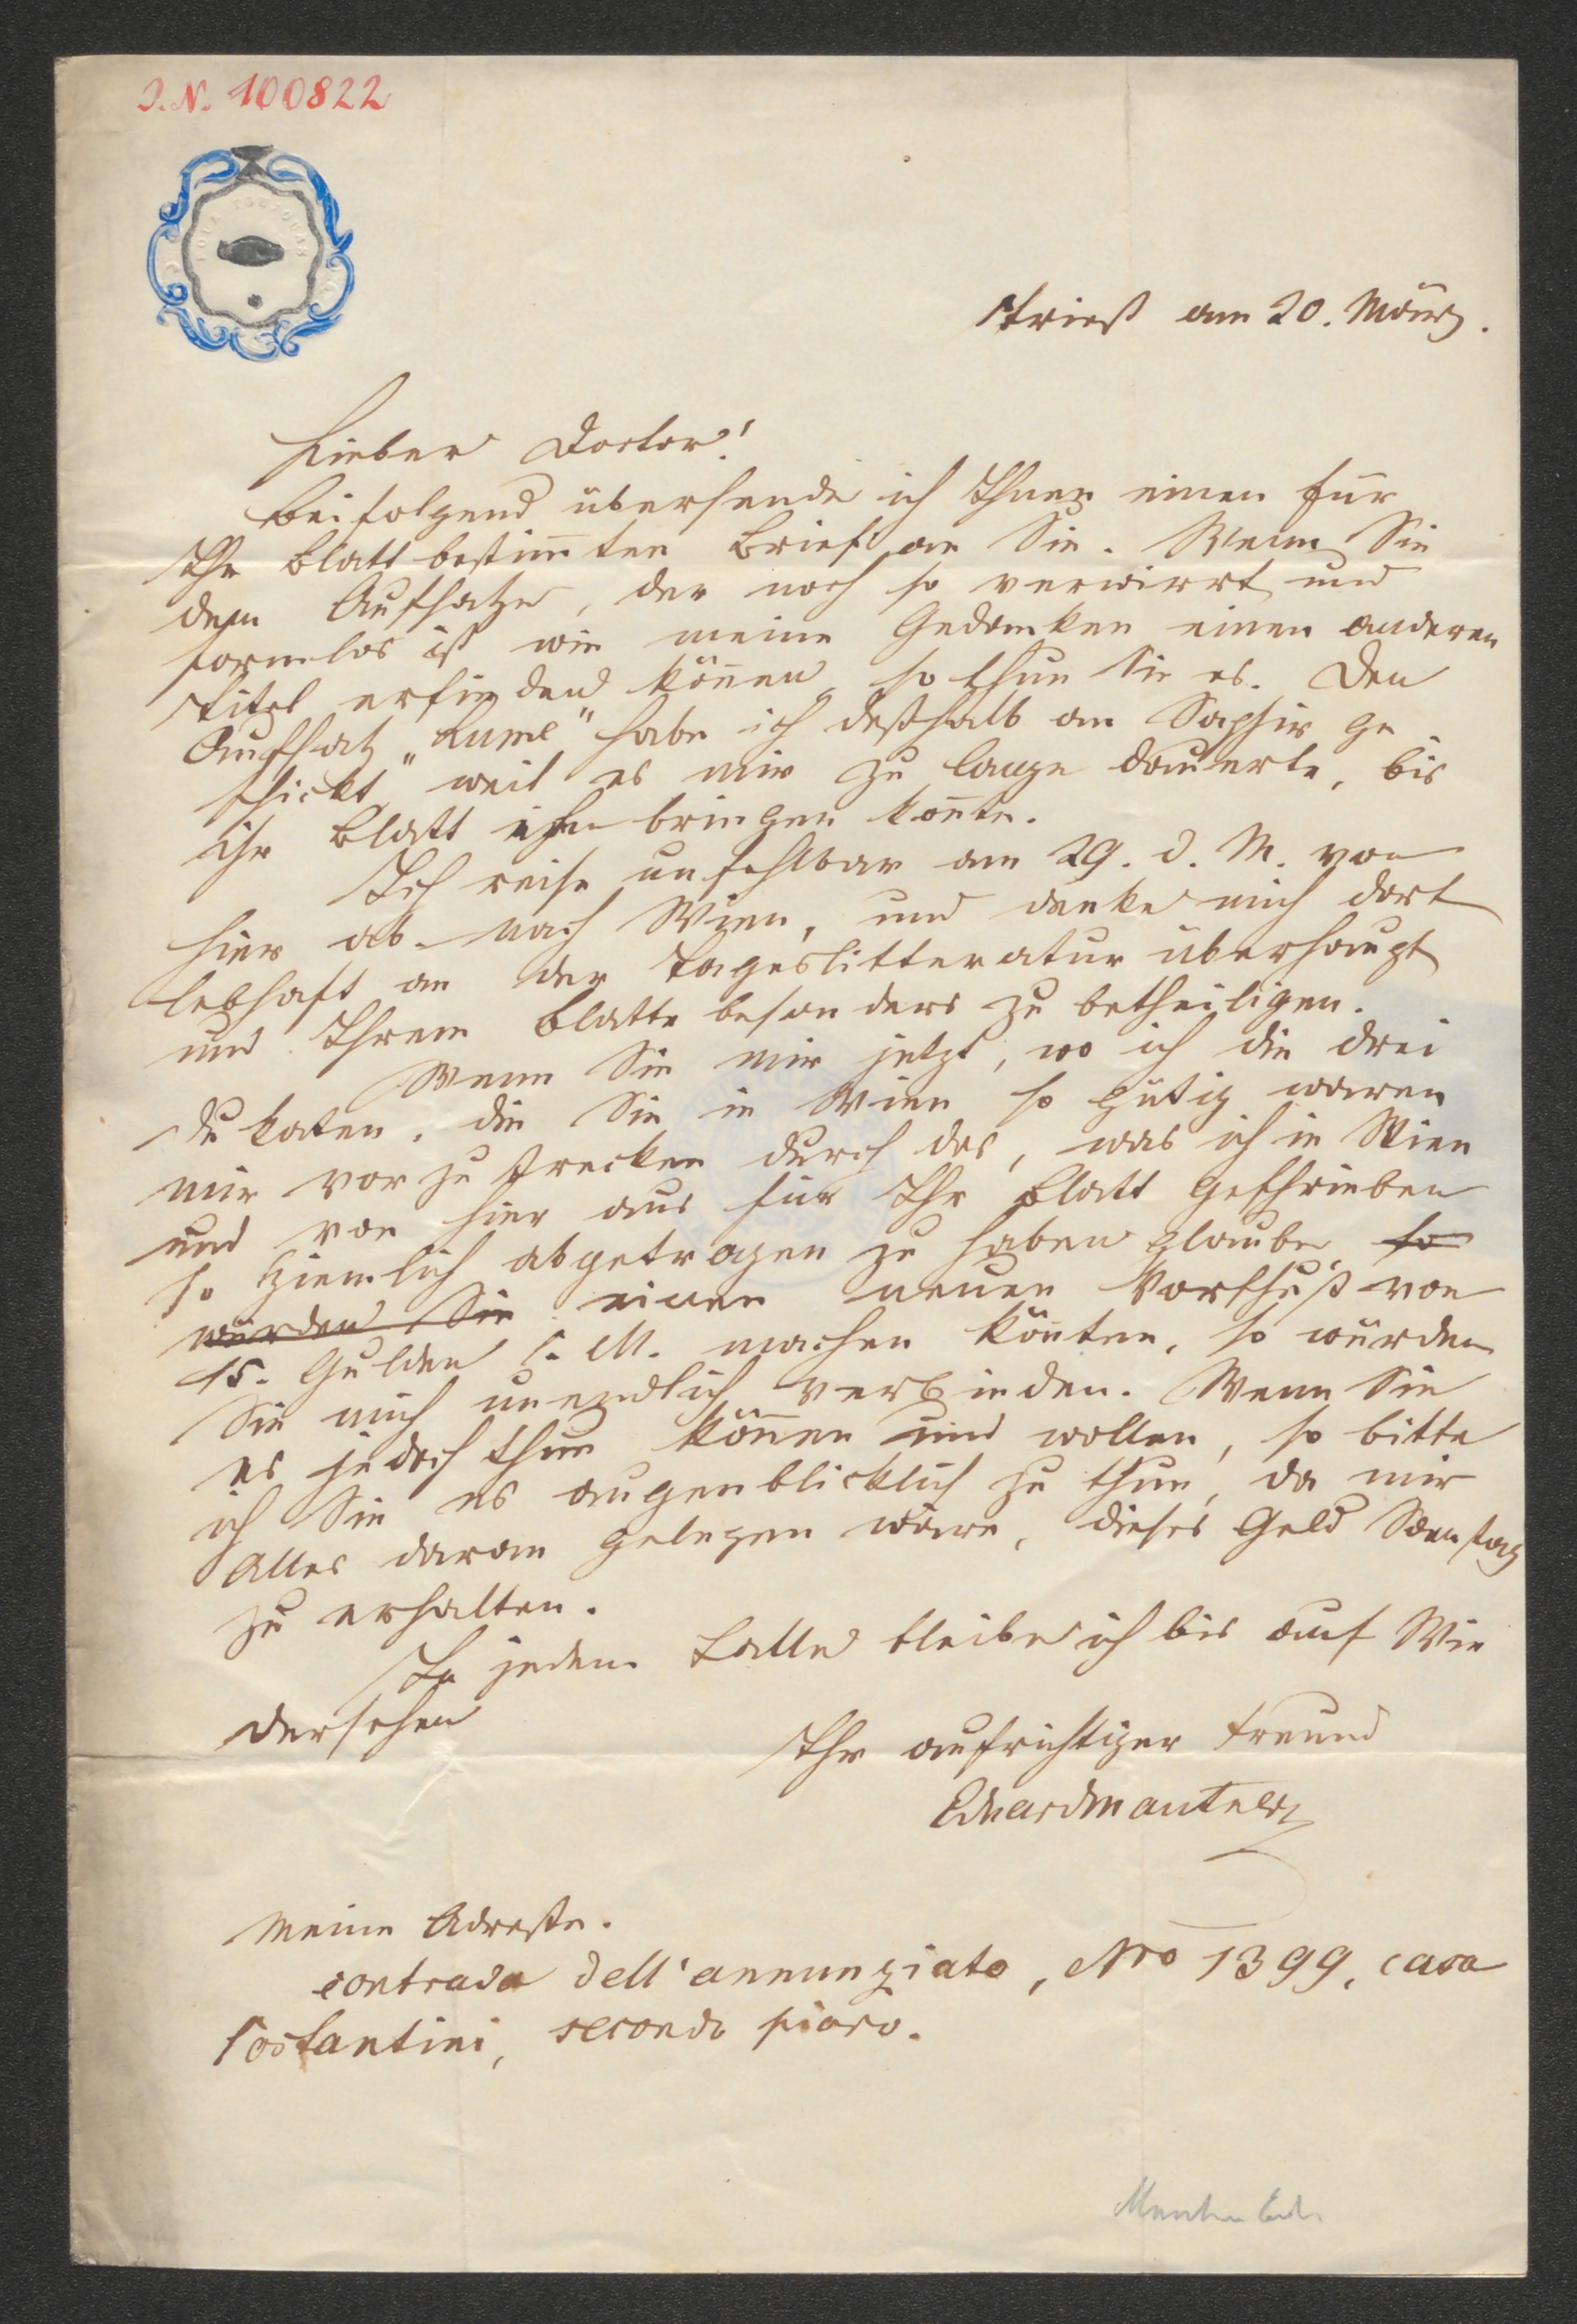 I. N. 100822
Triest am 20. März.
Lieber Doctor!
Beifolgend übersende ich Ihnen einen für
Ihr Blatt bestim̄ten Brief an Sie. Wenn Sie
dem Aufsatze, der noch so verwirrt und
formlos ist wie meine Gedanken einen anderen
Titel erfinden kön̄en, so thun Sie es. Den
Aufsatz „Lume" habe ich deßhalb an Saphir ge
schickt, weil es mir zu lange dauerte, bis
Ihr Blatt ihn bringen kon̄te.
Ich reise unfehlbar am 29. d. M. von
hier ab nach Wien, und denke mich dort
lebhaft an der Tageslitteratur überhaupt
und Ihrem Blatte besonders zu betheiligen.
Wenn Sie mir jetzt, wo ich die drei
Dukaten, die Sie in Wien so gütig waren
mir vorzustrecken durch das, was ich in Wien
und von hier aus für Ihr Blatt geschrieben
so ziemlich abgetragen zu haben glaube, so
würden Sie einen neuen Vorschuß von
15. Gulden C. M. machen kön̄ten, so würden
Sie mich unendlich verbinden. Wenn Sie
es jedoch thun kön̄en und wollen, so bitte
ich Sie es augenblicklich zu thun, da mir
Alles daran gelegen wäre, dieses Geld Samstag
zu erhalten.
In jedem Falle bleibe ich bis auf Wie
dersehen
Ihr aufrichtiger Freund
Eduard Mautner
Meine Adresse.
contrada dell'annunziata, Nro 1399, casa
Costantini, secondo piano.